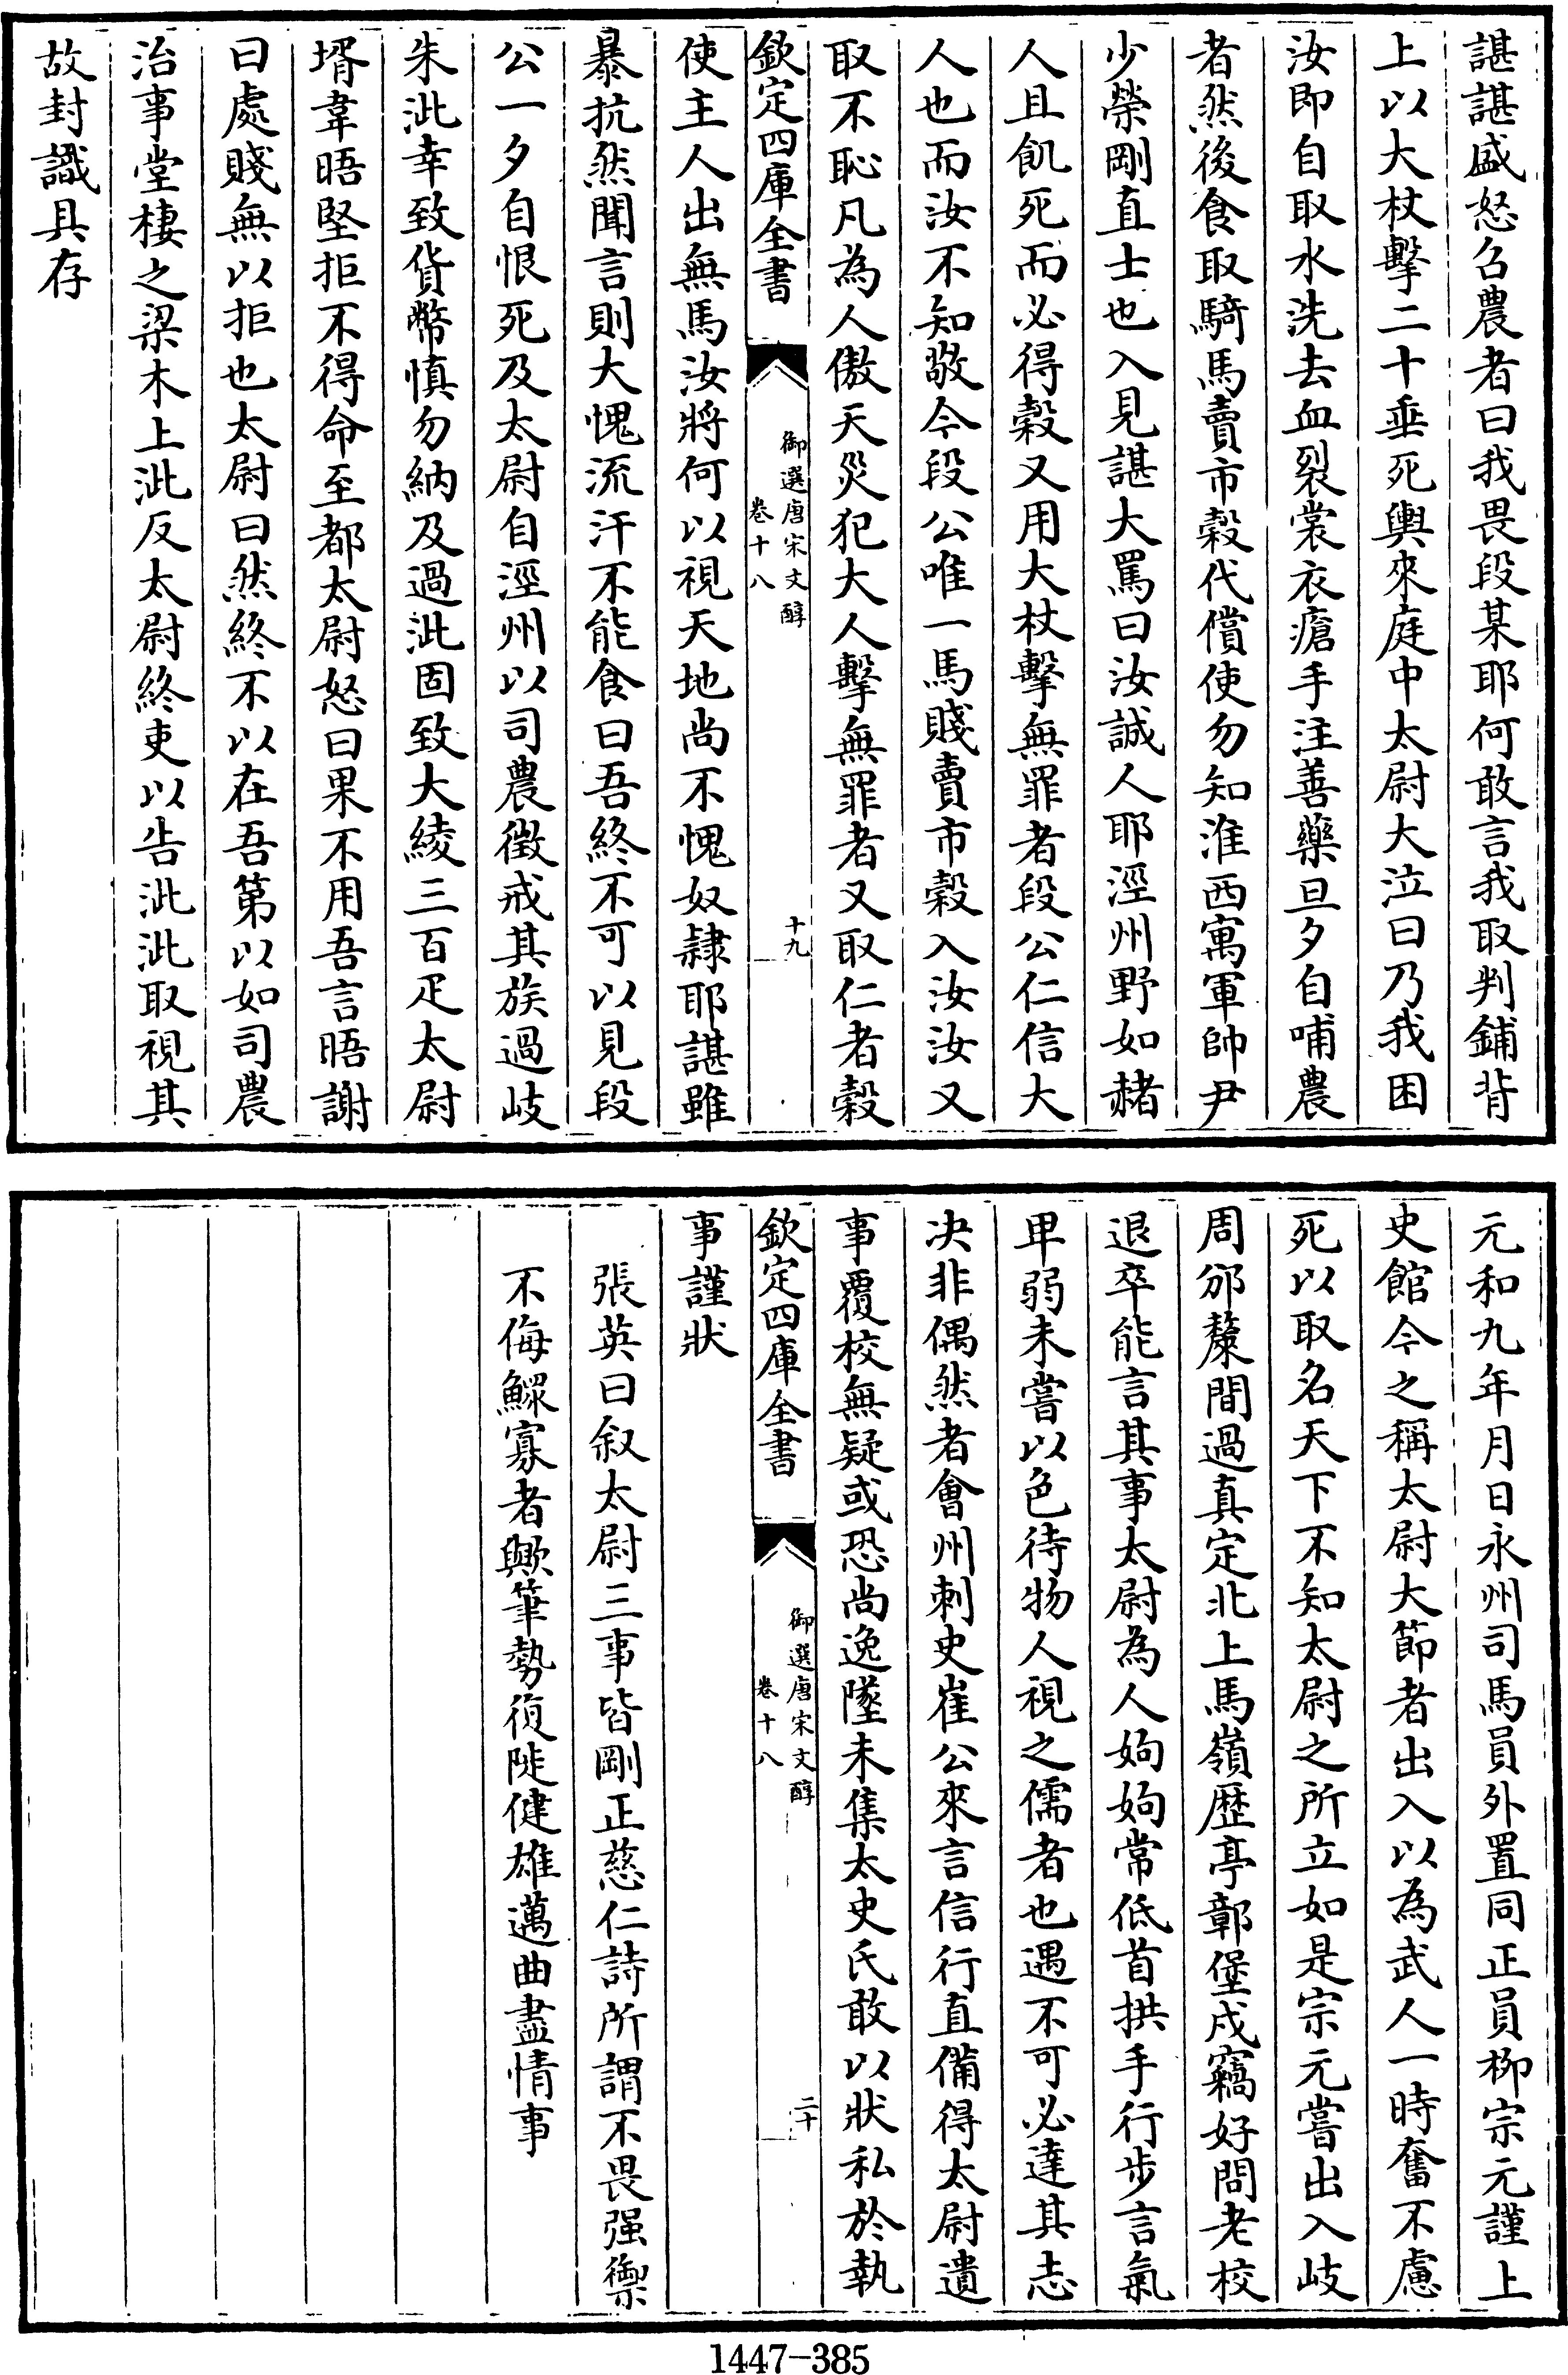 諶諶盛怒召農者曰我畏段某耶何敢言我取判鋪背
上以大杖擊二十垂死輿來庭中太尉大泣曰乃我困
汝即自取水洗去血裂裳衣瘡手注善藥旦夕自哺農
者然後食取騎馬賣市榖代償使勿知淮西寓軍帥尹
少榮剛直士也入見諶大罵曰汝誠人耶涇州野如赭
人且飢死而必得榖又用大杖擊無罪者段公仁信大
人也而汝不知敬今段公唯一馬賤賣市榖入汝汝又
取不恥凡為人傲天災犯大人擊無罪者又取仁者榖
欽定四庫全書
御選唐宋文醇
卷十八
十九
使主人出無馬汝將何以視天地尚不愧奴隸耶諶雖
暴抗然聞言則大愧流汗不能食曰吾終不可以見段
公一夕自恨死及太尉自涇州以司農徵戒其族過岐
朱泚幸致貨幣慎勿納及過泚固致大綾三百疋太尉
壻韋晤堅拒不得命至都太尉怒曰果不用吾言晤謝
曰處賤無以拒也太尉曰然終不以在吾第以如司農
治事堂棲之梁木上泚反太尉終吏以告泚泚取視其
故封識具存
元和九年月日永州司馬員外置同正員柳宗元謹上
史館今之稱太尉大節者出入以為武人一時奮不慮
死以取名天下不知太尉之所立如是宗元嘗出入岐
周邠斄間過真定北上馬嶺歴亭鄣堡戍竊好問老校
退卒能言其事太尉為人姁姁常低首拱手行步言氣
卑弱未嘗以色待物人視之儒者也遇不可必達其志
决非偶然者會州刺史崔公來言信行直備得太尉遺
事覆校無疑或恐尚逸墜未集太史氏敢以狀私於執
欽定四庫全書
御選唐宋文醇
卷十八
二十
事謹狀
張英曰叙太尉三事皆剛正慈仁詩所謂不畏强禦
不侮鰥寡者歟筆勢復陡健雄邁曲盡情事
1447-385